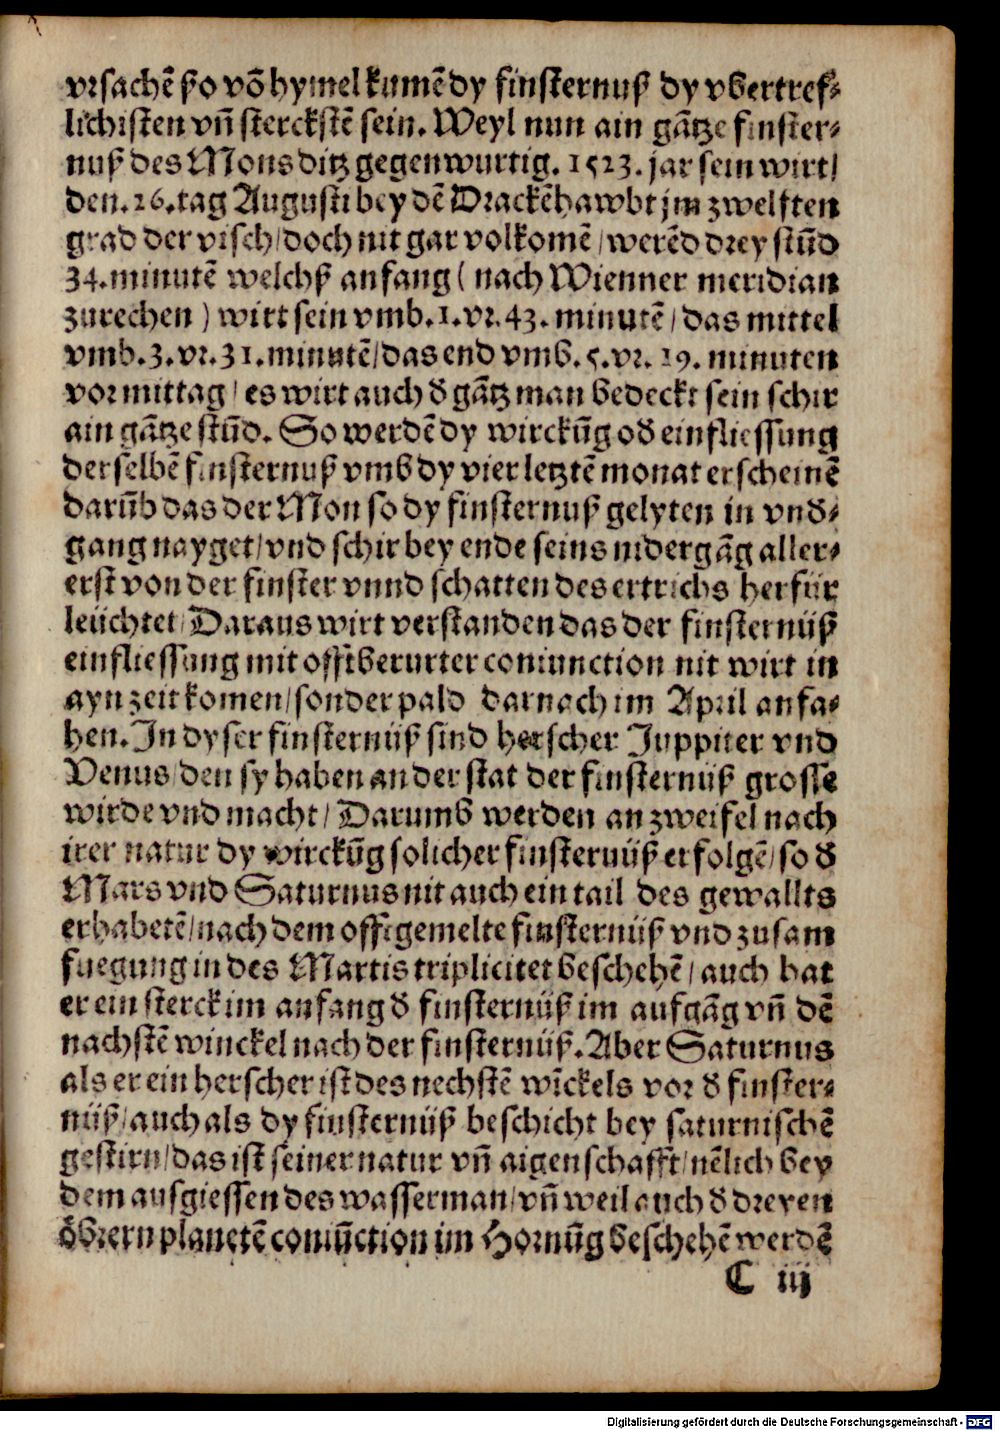 vrsachẽ ßo võ hymel kumẽ dy finsternuß dy vbertref⸗
lichisten vñ sterckstẽ sein. Weyl nun ain gãtze finster⸗
nuß des Mons ditz gegenwurtig. 1523. jar sein wirt/
den. 26. tag Augusti bey dẽ Drackẽhawbt jm zwelften
grad der visch/ doch nit gar volkomẽ/ werẽd drey stũd
34. minutẽ welchß anfang ( nach Wienner meridian
zurechen ) wirt sein vmb. 1. vr. 43. minutẽ/ das mittel
vmb. 3. vr. 31. minutẽ/ das end vmb. 5. vr. 19. minuten
vor mittag/ es wirt auch d gãtz man bedeckt sein schir
ain gãtze stũd. So werdẽ dy wirckũg od einfliessung
derselbẽ finsternuß vmb dy vier letztẽ monat erscheinẽ
darũb das der Mon so dy finsternuß gelyten in vnd⸗
gang nayget/ vnd schir bey ende seins nidergãg aller⸗
erst von der finster vnnd schatten des ertrichs herfür
leüchtet/ Daraus wirt verstanden das der finsternüß
einfliessung mit offtberurter coniunction nit wirt in
ayn zeit komen/ sonder pald darnach im April anfa⸗
hen. In dyser finsternüß sind herscher Juppiter vnd
Venus/ den sy haben an der stat der finsternüß grosse
wirde vnd macht/ Darumb werden an zweifel nach
irer natur dy wirckũg solicher finsternüß erfolgẽ/ so d
Mars vnd Saturnus nit auch ein tail des gewallts
erhabetẽ/ nach dem offtgemelte finsternüß vnd zusam
fuegung in des Martis triplicitet beschehẽ/ auch hat
er ein sterck im anfang d finsternüß im aufgãg vñ dẽ
nachstẽ winckel nach der finsternüß. Aber Saturnus
als er ein herscher ist des nechstẽ wĩckels vor d finster⸗
nüß/ auch als dy finsternüß beschicht bey saturnischẽ
gestirn/ das ist seiner natur vñ aigenschafft/ nẽlich bey
dem ausgiessen des wasserman/ vñ weil auch d dreyen
öbrern planetẽ coniũction im Hornũg beschehẽ werdẽ
C iij
Digitalisierung gefördert durch die Deutsche Forschungsgemeinschaft - DFG